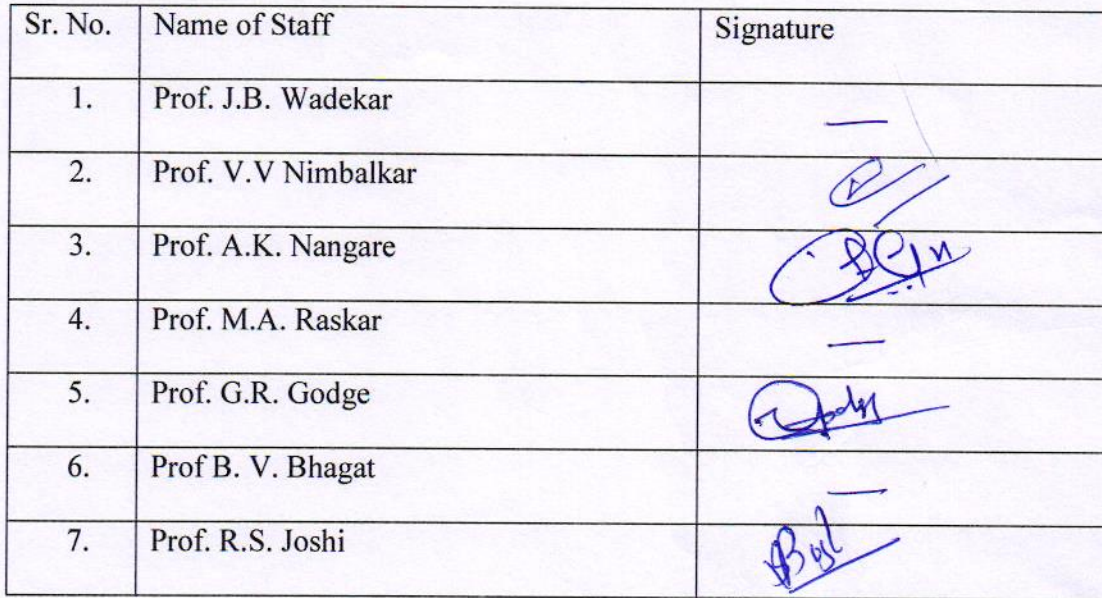 Sr. No. Name of Staff Signature
1. Prof. J.B. Wadekar —
2. Prof. V.V Nimbalkar
3. Prof. A.K. Nangare
4. Prof. M.A. Raskar —
5. Prof. G.R. Godge
6. Prof B. V. Bhagat —
7. Prof. R.S. Joshi